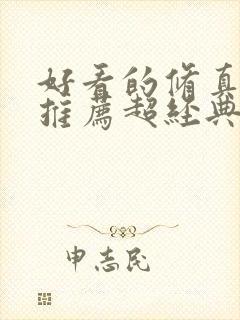 好看的脩真
推薦超經典
申志民